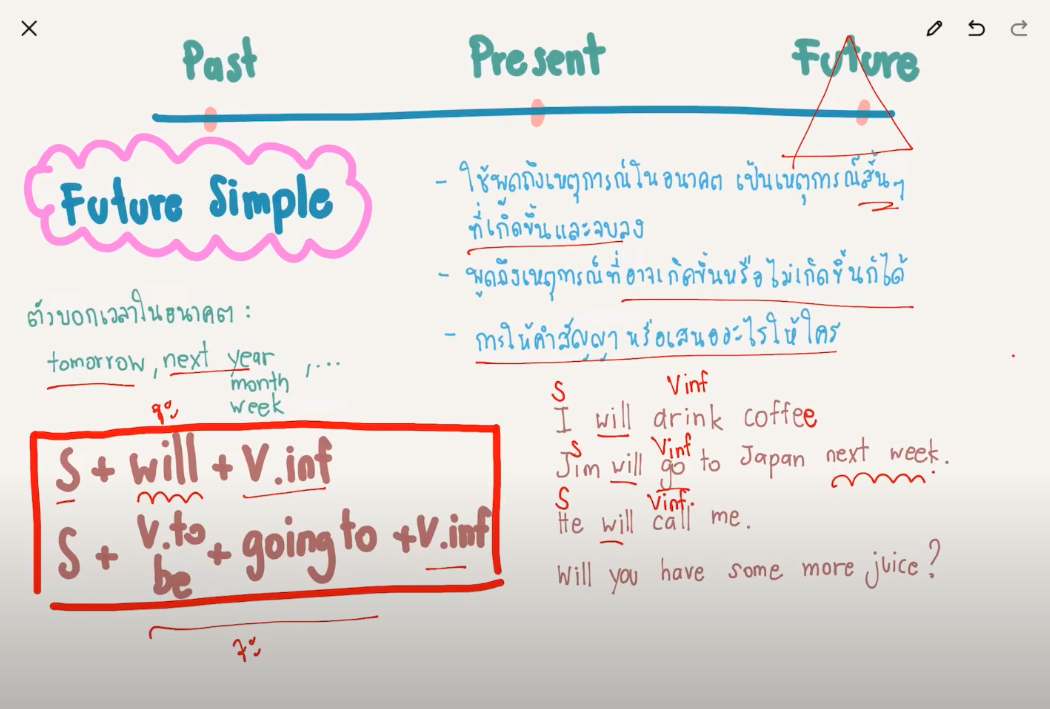 Past Present Future
Future Simple
- ใช้พูดถึงเหตุการณ์ในอนาคต เป็นเหตุการณ์สั้นๆ
ที่เกิดขึ้นและจบลง
- พูดถึงเหตุการณ์ที่อาจเกิดขึ้นหรือไม่เกิดขึ้นก็ได้
- การให้คำสัญญา หรือเสนออะไรให้ใคร
ตัวบอกเวลาในอนาคต :
tomorrow, next year, ...
month
week
จะ
S + will + V.inf
S + V.to be + going to + V.inf
จะ
S Vinf
I will drink coffee
S Vinf
Jim will go to Japan next week.
S Vinf.
He will call me.
Will you have some more juice?